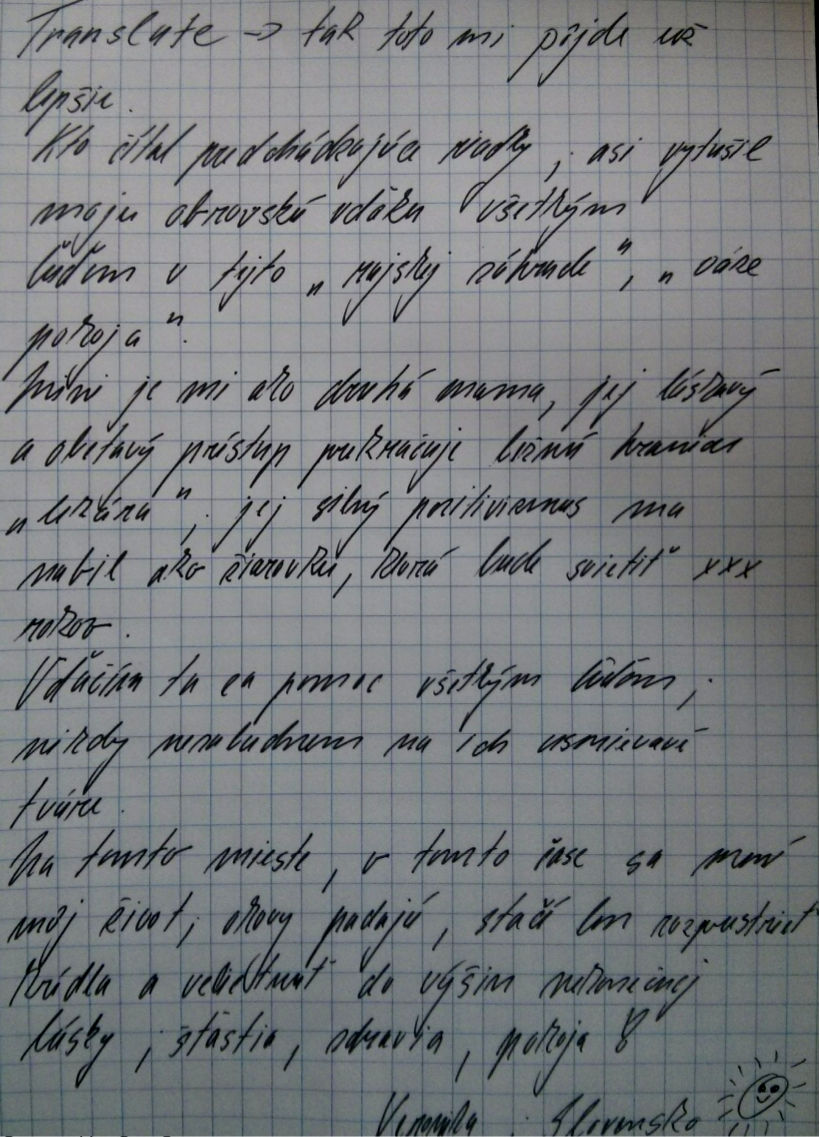 Translate → tak toto mi príjde už
lepšie.
Kto čítal predchádzajúce riadky, asi vytušil
moju obrovskú vďaku všetkým
ľuďom v tejto „rajskej záhrade", „oáze
pokoja".
je mi ako druhá mama, jej láskavý
a obetavý prístup prekračuje bežnú hranicu
„lekára", jej silný pozitivizmus ma
nabil ako žiarovku, ktorá bude svietiť xxx
rokov.
Vďačím tu za pomoc všetkým ľuďom,
nikdy nezabudnem na ich usmievavé
tváre.
Na tomto mieste, v tomto čase sa mení
môj život, okovy padajú, stačí len rozprestrieť
krídla a vzlietnuť do výšin nekonečnej
lásky, šťastia, zdravia, pokoja
Veronika, Slovensko